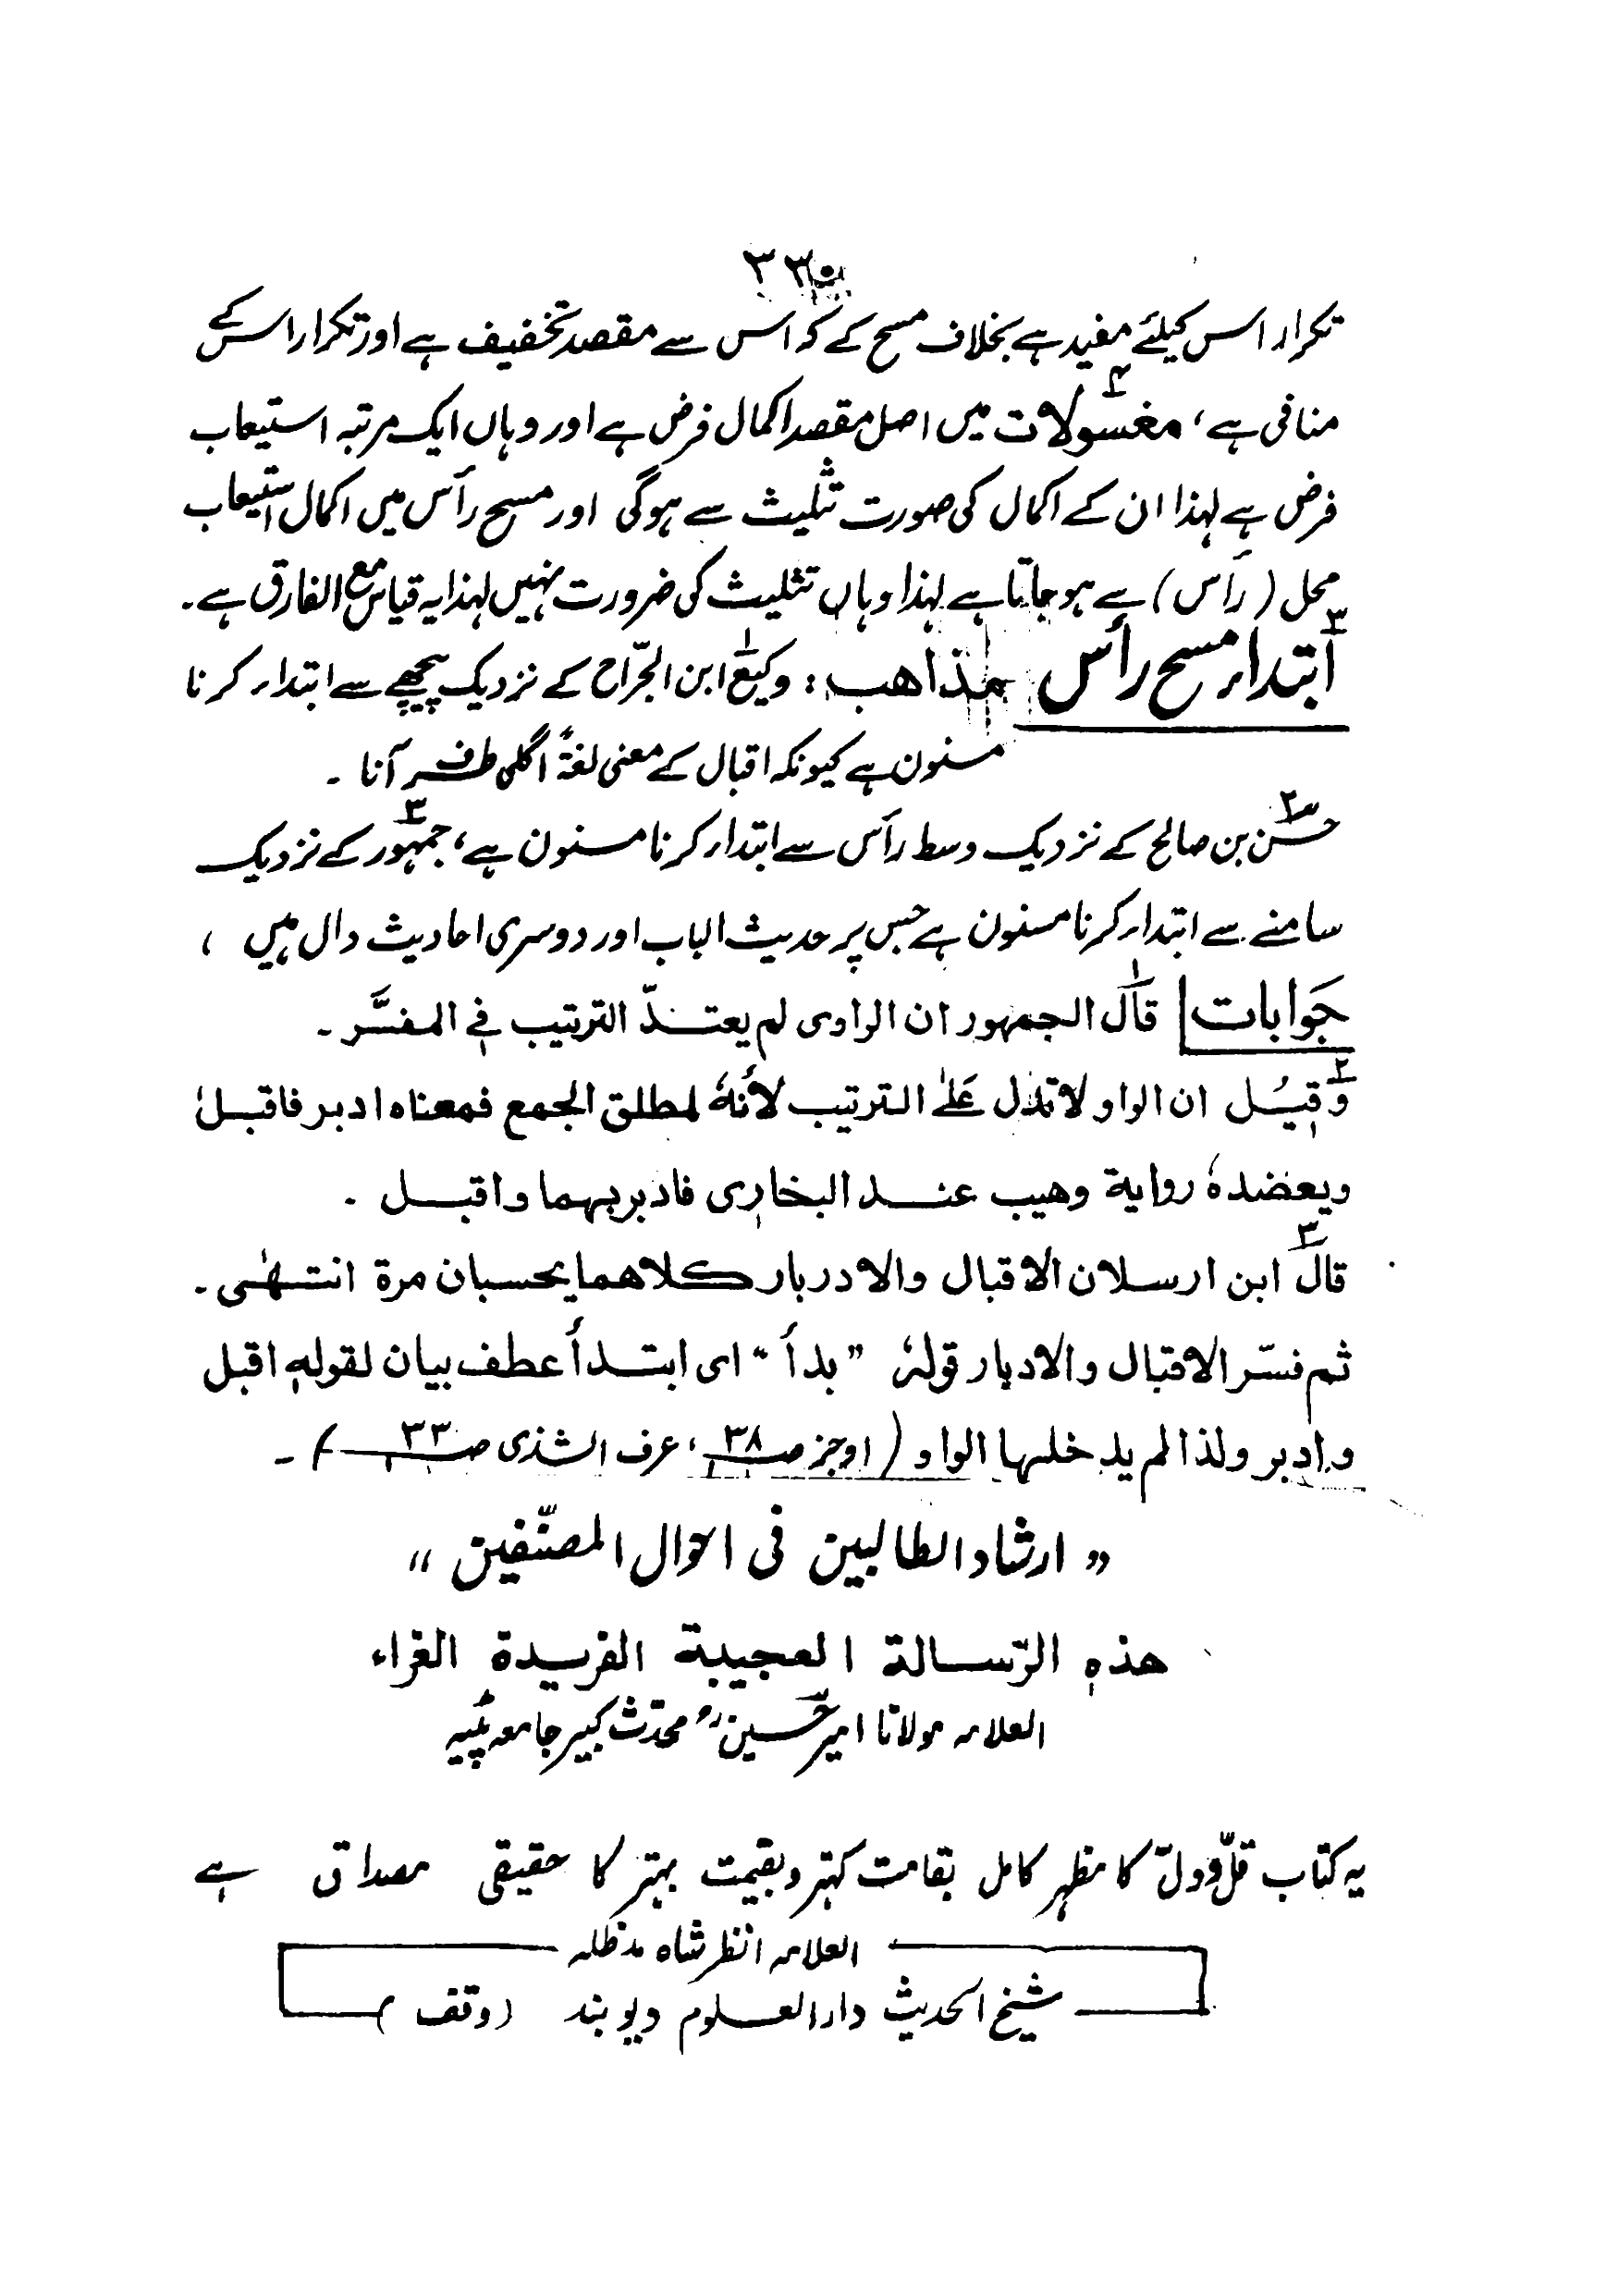 ۳۳۰
تکرار اس کیلئے مفید ہے بخلاف مسح کے کہ اس سے مقصد تخفیف ہے اور تکرار اس کے
منافی ہے، ۲ مغسولات میں اصل مقصد اکمال فرض ہے اور وہاں ایک مرتبہ استیعاب
فرض ہے لہذا ان کے اکمال کی صورت تثلیث سے ہوگی اور مسح رأس میں اکمال استیعاب
محل (رأس) سے ہو جاتا ہے لہذا وہاں تثلیث کی ضرورت نہیں لہذا یہ قیاس مع الفارق ہے۔
۳ ابتداء مسح رأس مذاهب: ۱ وکیع ابن الجرّاح کے نزدیک پیچھے سے ابتداء کرنا
مسنون ہے کیونکہ اقبال کے معنی لغۃً اگلی طرف آنا۔
۲ حسن بن صالح کے نزدیک وسط رأس سے ابتداء کرنا مسنون ہے، ۳ جمہور کے نزدیک
سامنے سے ابتداء کرنا مسنون ہے جس پر حدیث الباب اور دوسری احادیث دال ہیں،
جوابات ۱ قال الجمہور ان الراوی لم یعتدّ الترتیب فی المفسَّر۔
۲ وقیل ان الواو لا تدل علیٰ الترتیب لأنہٗ لمطلق الجمع فمعناہ ادبر فاقبل
ویعضدہٗ روایة وهیب عند البخاری فادبر بہما واقبل۔
۳ قال ابن ارسلان الاقبال والادربار کلاهما یحسبان مرة انتہٰی۔
ثم فسّر الاقبال والادبار قولہٗ ”بدأ“ ای ابتدأ عطف بیان لقولہٖ اقبل
وادبر ولذا لم یدخلہا الواو (اوجز صـ۳۸، عرف الشذی صـ۳۳)۔
”ارشاد الطالبین فی احوال المصنّفین“
هذہٖ الرّسالة العجیبة الفریدة الغراء
العلامہ مولانا امیر حسین رح محدّث کبیر جامعہ پٹیہ
یہ کتاب قلّ ودلّ کا مظہر کامل بقامت کہتر وبقیمت بہتر کا حقیقی مصداق ہے
العلامہ انظر شاہ مدظلہ
شیخ الحدیث دار العلوم دیوبند (وقف)